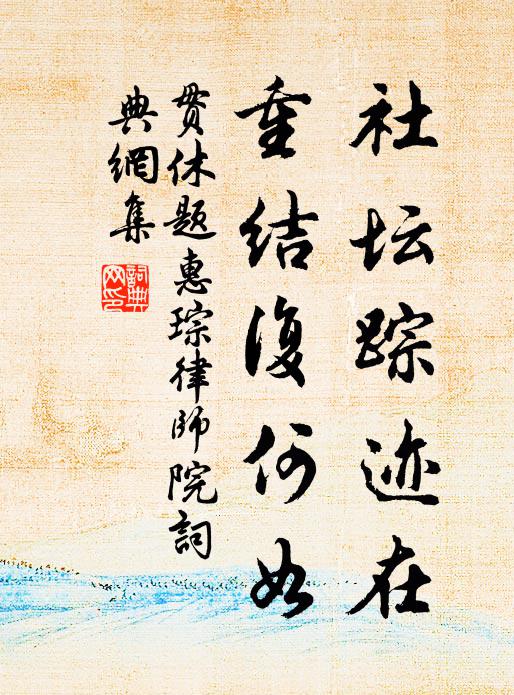 社坛踪迹在
重结复何如
贯休题惠琮律师院詞
典網集
詞典
网印